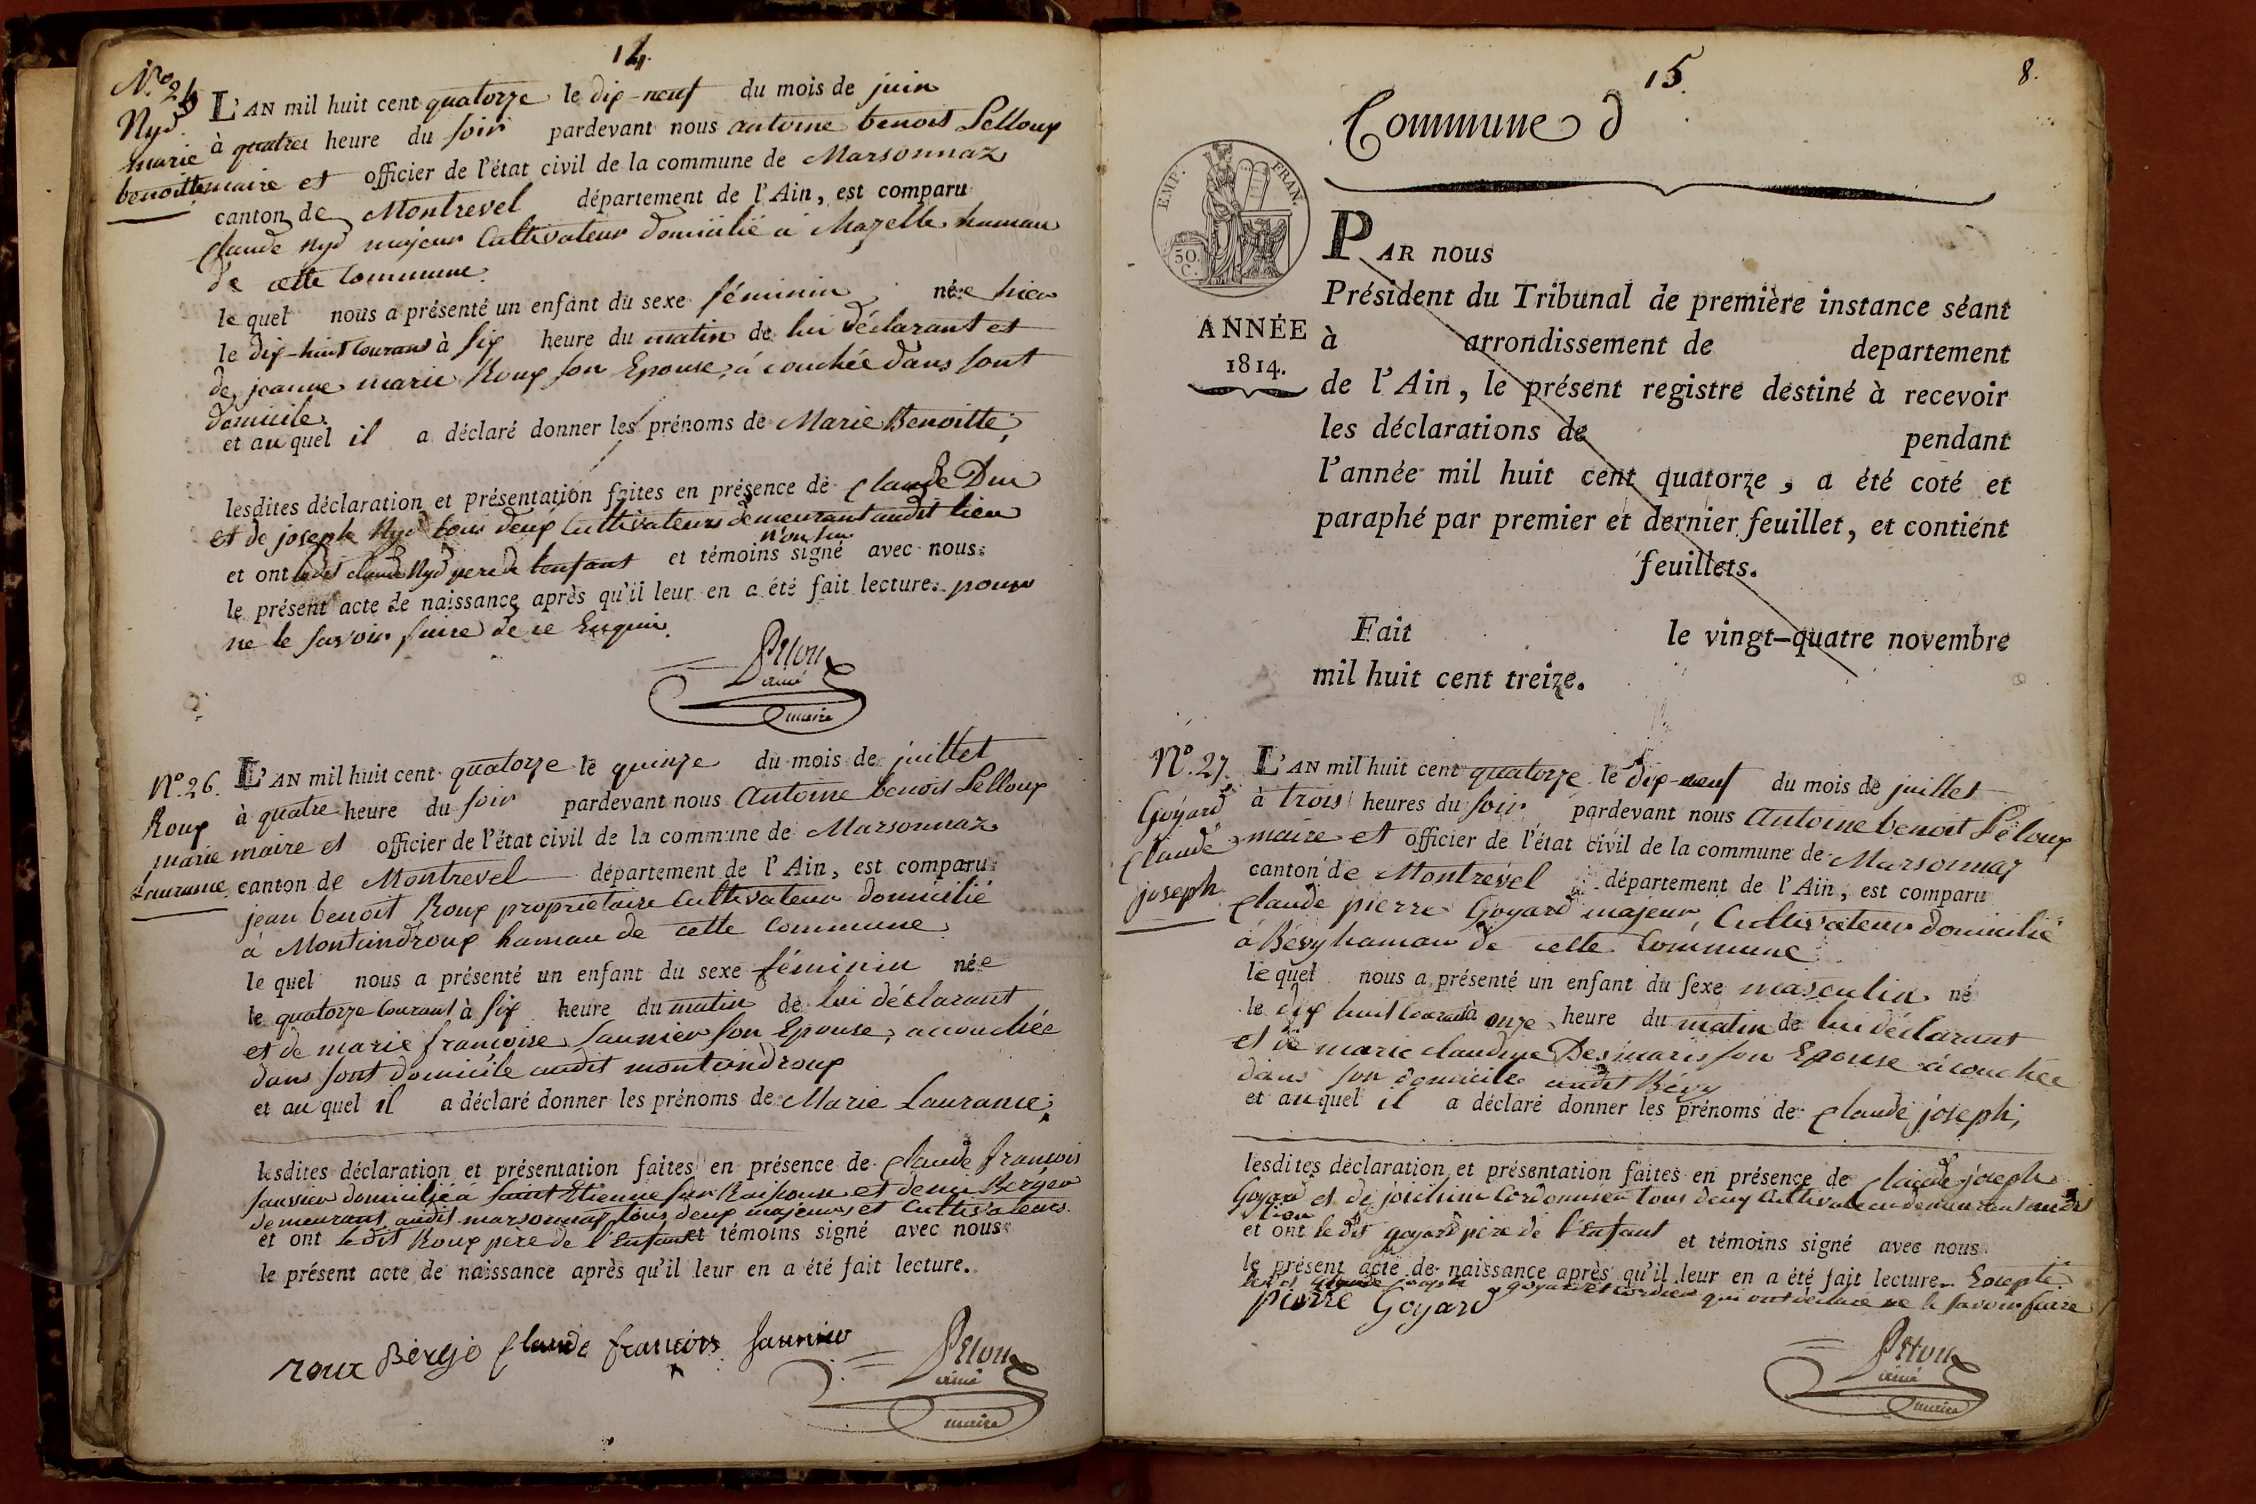 14.
N.° 25
Nyd
marie
benoitte
L'AN mil huit cent quatorze le dix-neuf du mois de juin
à quatre heure du soir pardevant nous antoine benoit Pelloux
maire et officier de l'état civil de la commune de Marsonnaz
canton de Montrevel département de l'Ain, est comparu
Claude Nyd majeur Cultivateur domicilié à Mazelle hamau
de cette Commune.
le quel nous a présenté un enfant du sexe féminin née hier
le dix-huit courant à six heure du matin de lui déclarant et
de jeanne marie Roux son Epouse, acouchée dans sont
domicile.
et au quel il a déclaré donner les prénoms de Marie Benoitte,
lesdites déclaration et présentation faites en présence de Claude Duc
et de joseph Nyd tous deux Cultivateurs demeurant audit lieu
et ont ledit Claude Nyd pere de l'enfant et témoins signé avec nous
le présent acte de naissance après qu'il leur en a été fait lecture. pour
ne le savoir faire de ce Enquis.
Pelou
ainé
maire
N.° 26.
Roux
marie
Lauranne
L'AN mil huit cent quatorze le quinze du mois de juillet
à quatre heure du soir pardevant nous Antoine benoit Pelloux
maire et officier de l'état civil de la commune de Marsonnaz
canton de Montrevel département de l'Ain, est comparu
jean benoit Roux propriétaire Cultivateur domicilié
à Montaindroux hamau de cette Commune.
le quel nous a présenté un enfant du sexe féminin née
le quatorze Courant à six heure du matin de lui déclarant
et de marie françoise Saunier son Epouse, acouchée
dans sont domicile audit montaindroux
et au quel il a déclaré donner les prénoms de Marie Lauranne,
lesdites déclaration et présentation faites en présence de Claude françois
Saunier domicilié à Saint Etienne sur Raisouse et denis Berger
demeurant audit marsonnaz tous deux majeurs et Cultivateurs.
et ont ledit Roux pere de l'Enfant et témoins signé avec nous
le présent acte de naissance après qu'il leur en a été fait lecture.
roux Bergé Claude françois Saunier
Pelou
ainé
maire
15.
8.
Commune d
EMP. FRAN.
50.
C.
ANNÉE
1814.
PAR nous
Président du Tribunal de première instance séant
à arrondissement de departement
de l'Ain, le présent registre destiné à recevoir
les déclarations de pendant
l'année mil huit cent quatorze, a été coté et
paraphé par premier et dernier feuillet, et contient
feuillets.
Fait le vingt-quatre novembre
mil huit cent treize.
N.° 27.
Goyard
Claude
joseph.
L'AN mil huit cent quatorze le dix-neuf du mois de juillet
à trois heures du soir, pardevant nous Antoine benoit Péloux
maire et officier de l'état civil de la commune de Marsonnaz
canton de Montrevel département de l'Ain, est comparu
Claude pierre Goyard majeur, Cultivateur domicilié
à Bévy hamau de cette Commune
le quel nous a présenté un enfant du sexe masculin né
le dix huit courant à onze heure du matin de lui déclarant
et de marie claudine Desmaris son Epouse acouchée
dans son domicile audit Bévy
et au quel il a déclaré donner les prénoms de Claude joseph,
lesdites déclaration et présentation faites en présence de Claude joseph
Goyard et de joachim Cordonnier tous deux Cultivateur demeurant audit
lieu
et ont le dit goyard pere de l'Enfant et témoins signé avec nous
le présent acte de naissance après qu'il leur en a été fait lecture. Excepté
goyard et qui ont déclaré ne le savoir faire
pierre Goyard
Pelou
ainé
maire